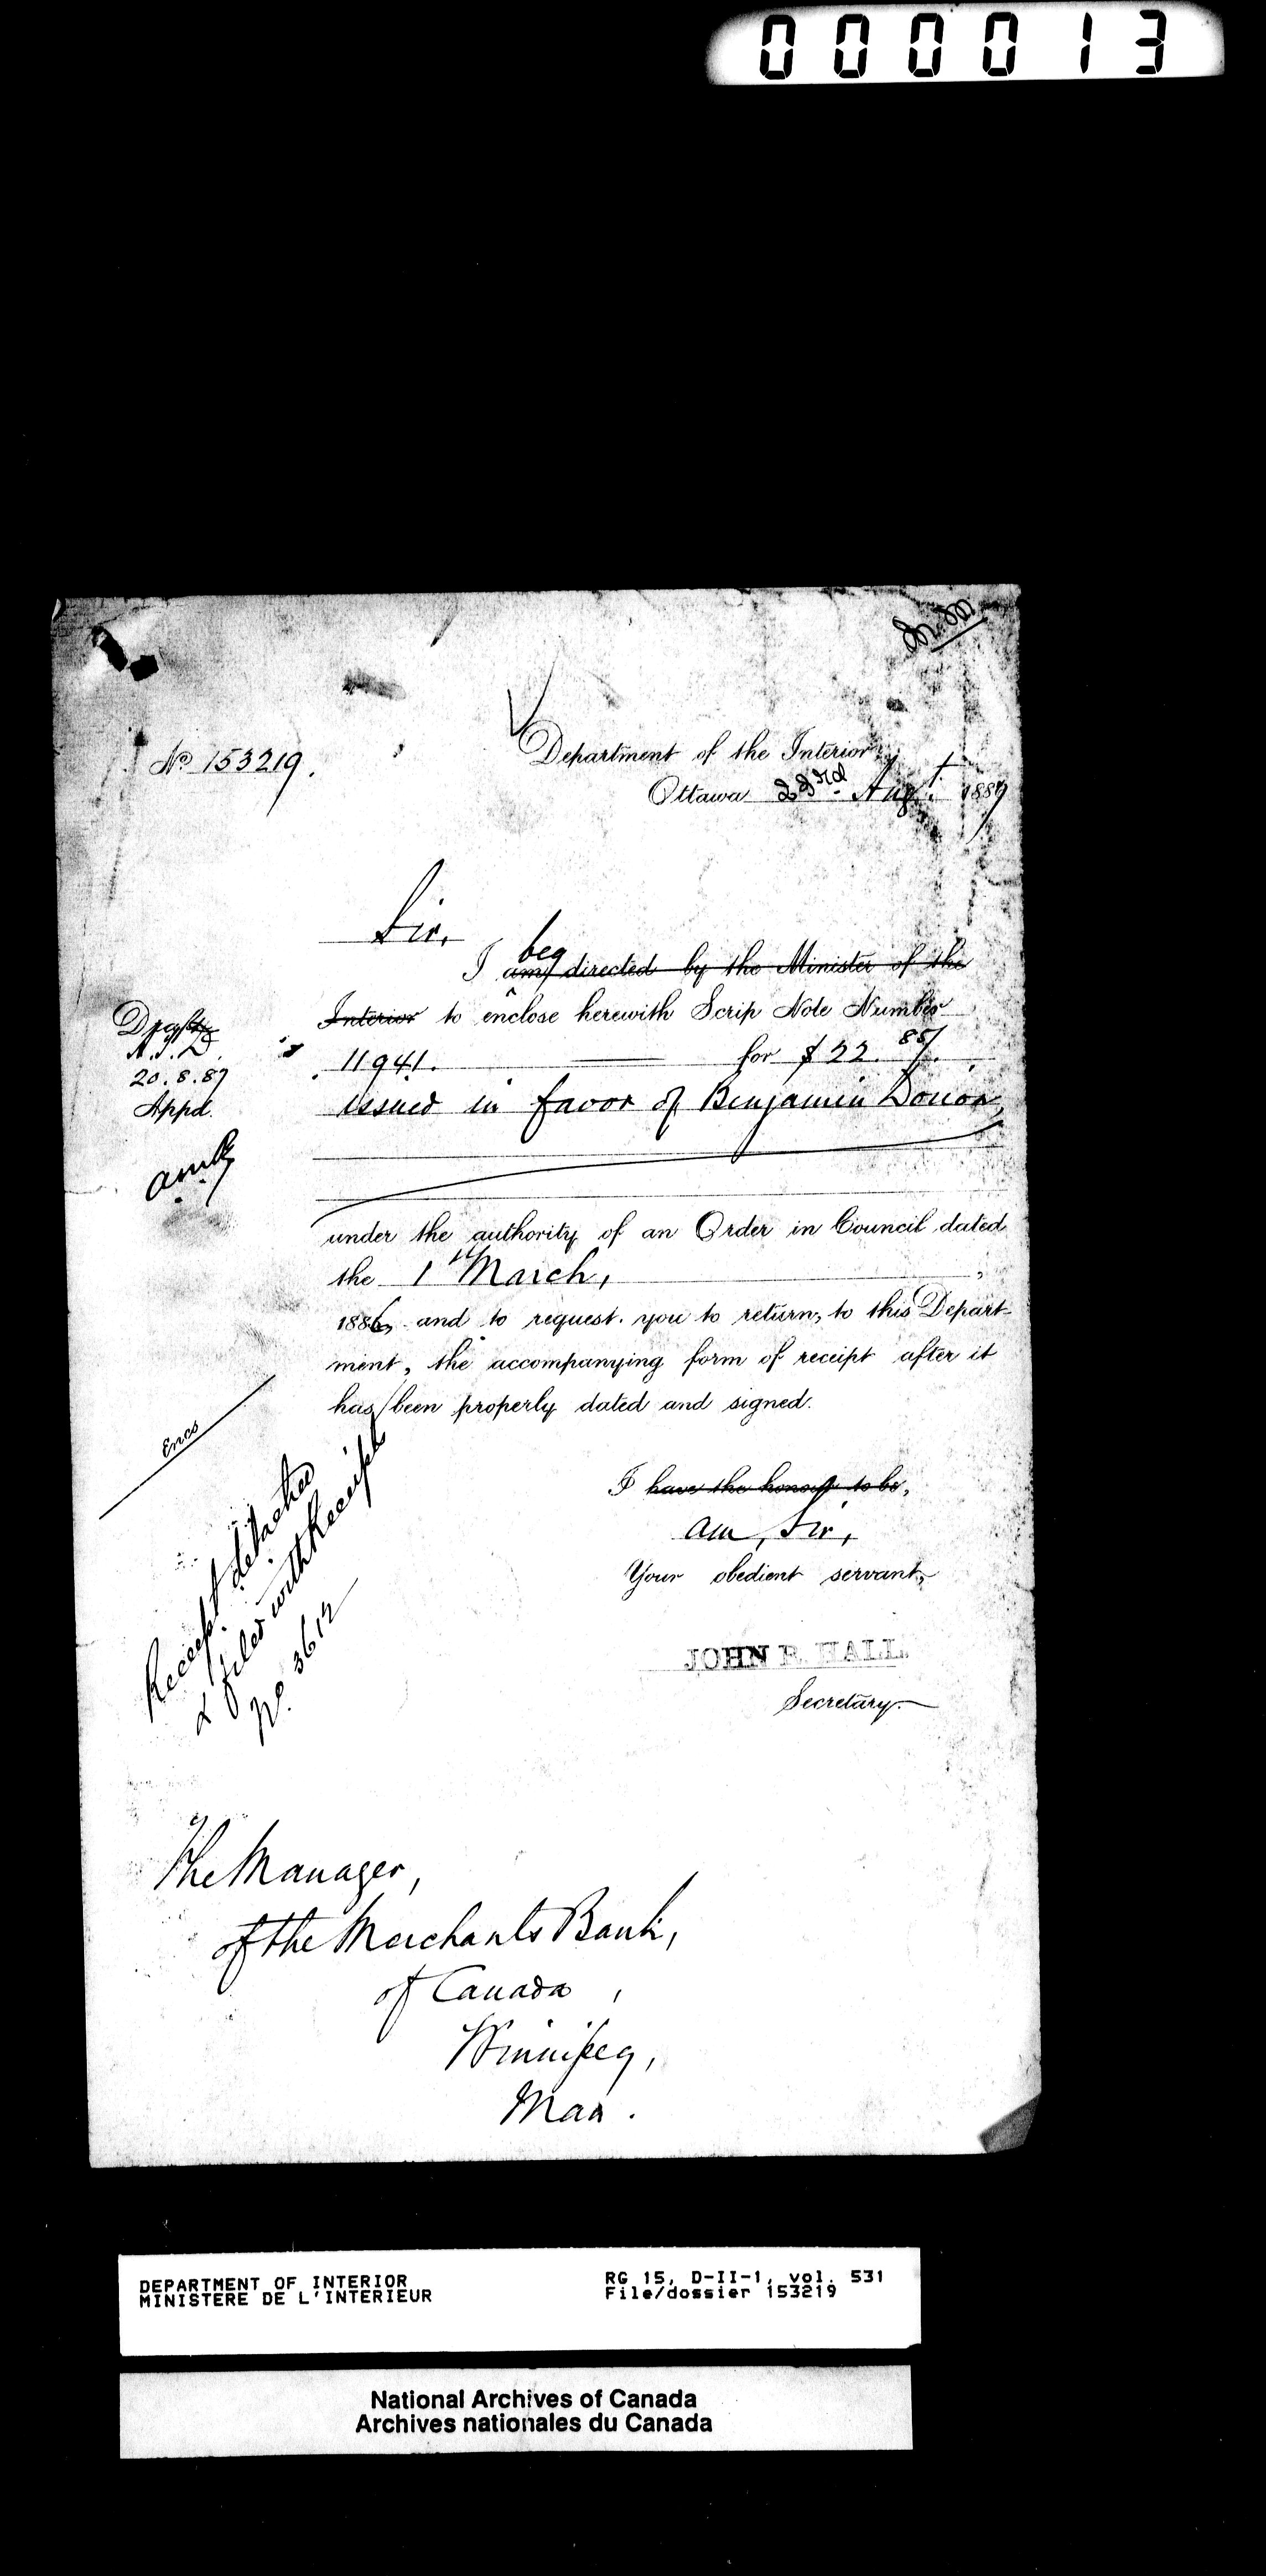 000013
No 153219.
Department of the Interior,
Ottawa 23rd Augt. 1887
Sir,
beg
I am directed by the Minister of the
Interior to enclose herewith Scrip Note Number
11941. for $22.85/.
issued in favor of Benjamin Donon,
Draft
A.S.D.
20.8.87
Appd.
under the authority of an Order in Council dated
the 1st March,
1886, and to request you to return, to this Depart-
ment, the accompanying form of receipt after it
has been properly dated and signed.
Encs
Receipt detached
& filed with Receipt
No. 3612
I have the honour to be,
am, Sir,
Your obedient servant,
JOHN R. HALL.
Secretary.
The Manager,
of the Merchants Bank,
of Canada,
Winnipeg,
Man.
DEPARTMENT OF INTERIOR
MINISTERE DE L'INTERIEUR
RG 15, D-II-1, vol. 531
File/dossier 153219
National Archives of Canada
Archives nationales du Canada